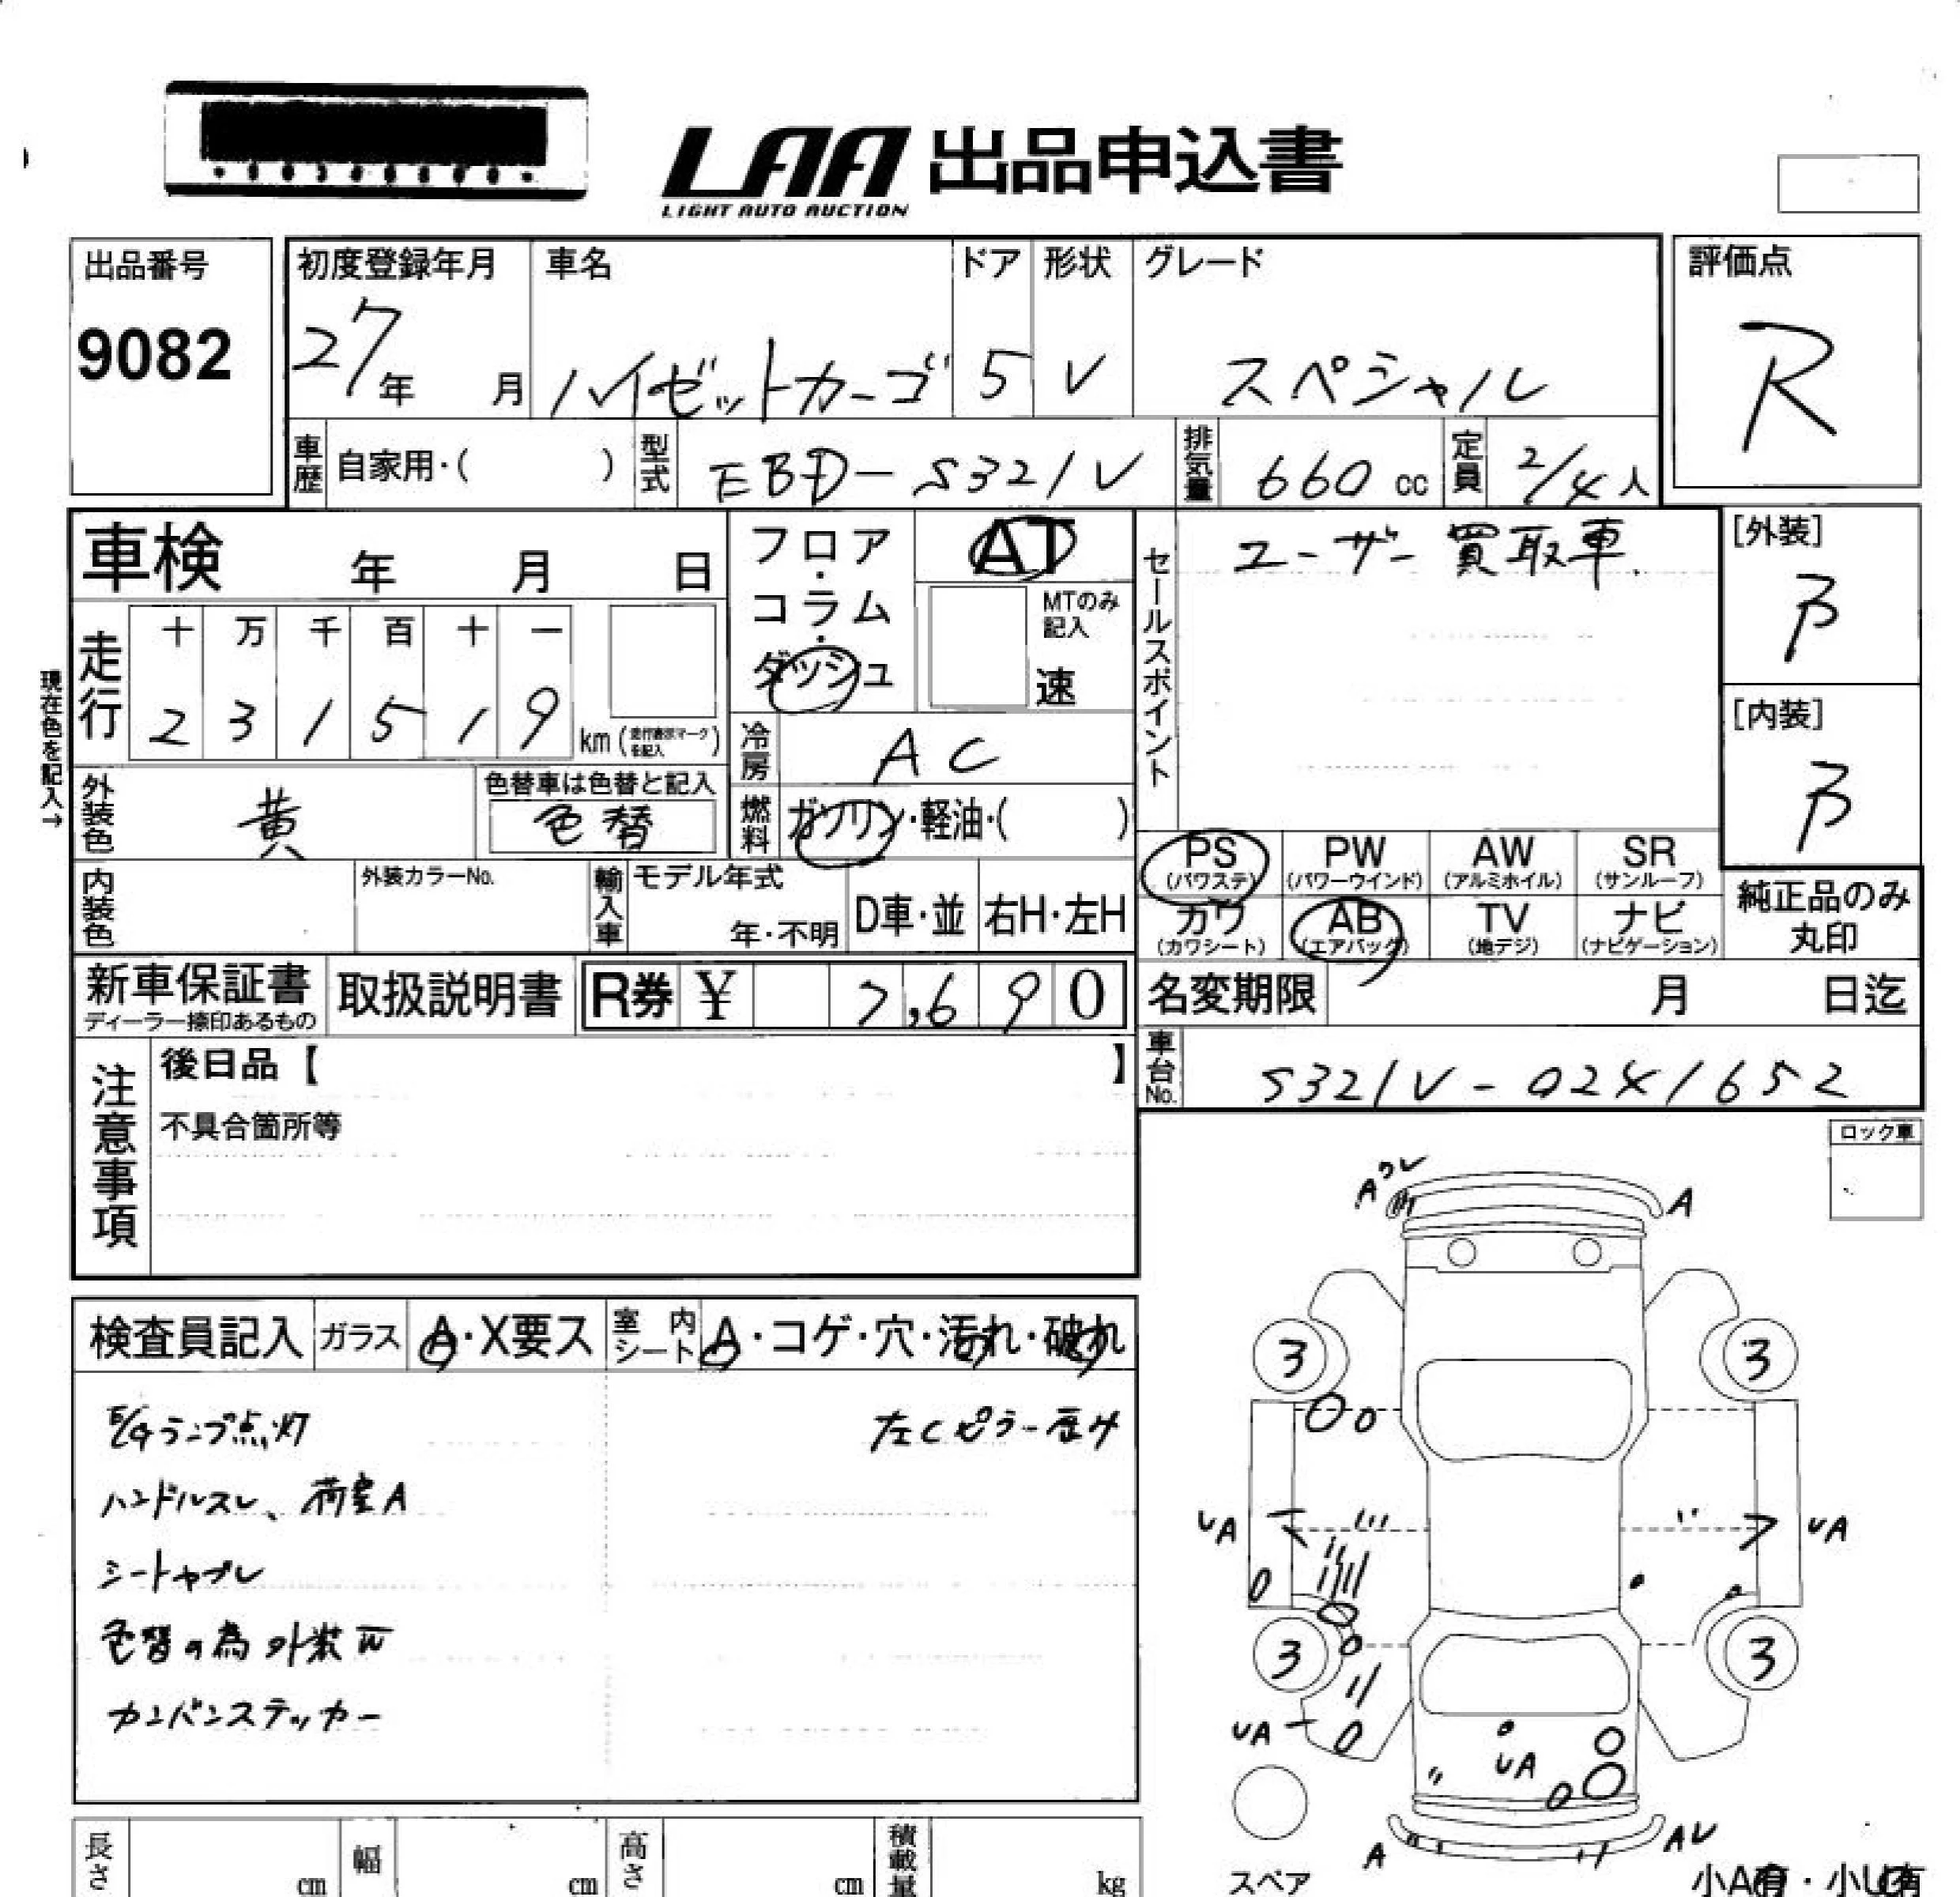 LAA 出品申込書
LIGHT AUTO AUCTION
出品番号
9082
初度登録年月
27年 月
車名
ハイゼットカーゴ
ドア
5
形状
V
グレード
スペシャル
評価点
R
車歴 自家用・( )
型式 EBD-S321V
排気量 660 cc
定員 2/4人
車検 年 月 日
フロア・コラム・ダッシュ
AT
MTのみ記入
速
セールスポイント
ユーザー買取車.
[外装]
B
[内装]
B
現在色を記入→
走行
十 万 千 百 十 一
2 3 1 5 1 9 km (走行表示マークを記入)
冷房 AC
外装色 黄
色替車は色替と記入
色替
燃料 ガソリン・軽油・( )
PS (パワステ)
PW (パワーウインド)
AW (アルミホイル)
SR (サンルーフ)
カワ (カワシート)
AB (エアバッグ)
TV (地デジ)
ナビ (ナビゲーション)
純正品のみ丸印
内装色
外装カラーNo.
輸入車
モデル年式
年・不明
D車・並
右H・左H
新車保証書
ディーラー捺印あるもの
取扱説明書
R券 ¥ 7,690
名変期限 月 日迄
車台No. S321V-0241652
注意事項
後日品【 】
不具合箇所等
ロック車
検査員記入
ガラス A・X要ス
室内シート A・コゲ・穴・汚れ・破れ
E/Gランプ点灯
左Cピラー歪み
ハンドルスレ、荷室A
シートヤブレ
色替の為外装W
カンバンステッカー
Aワレ
A
3
3
UA
UA
3
3
UA
UA
A
スペア
小A有・小U有
長さ cm
幅 cm
高さ cm
積載量 kg